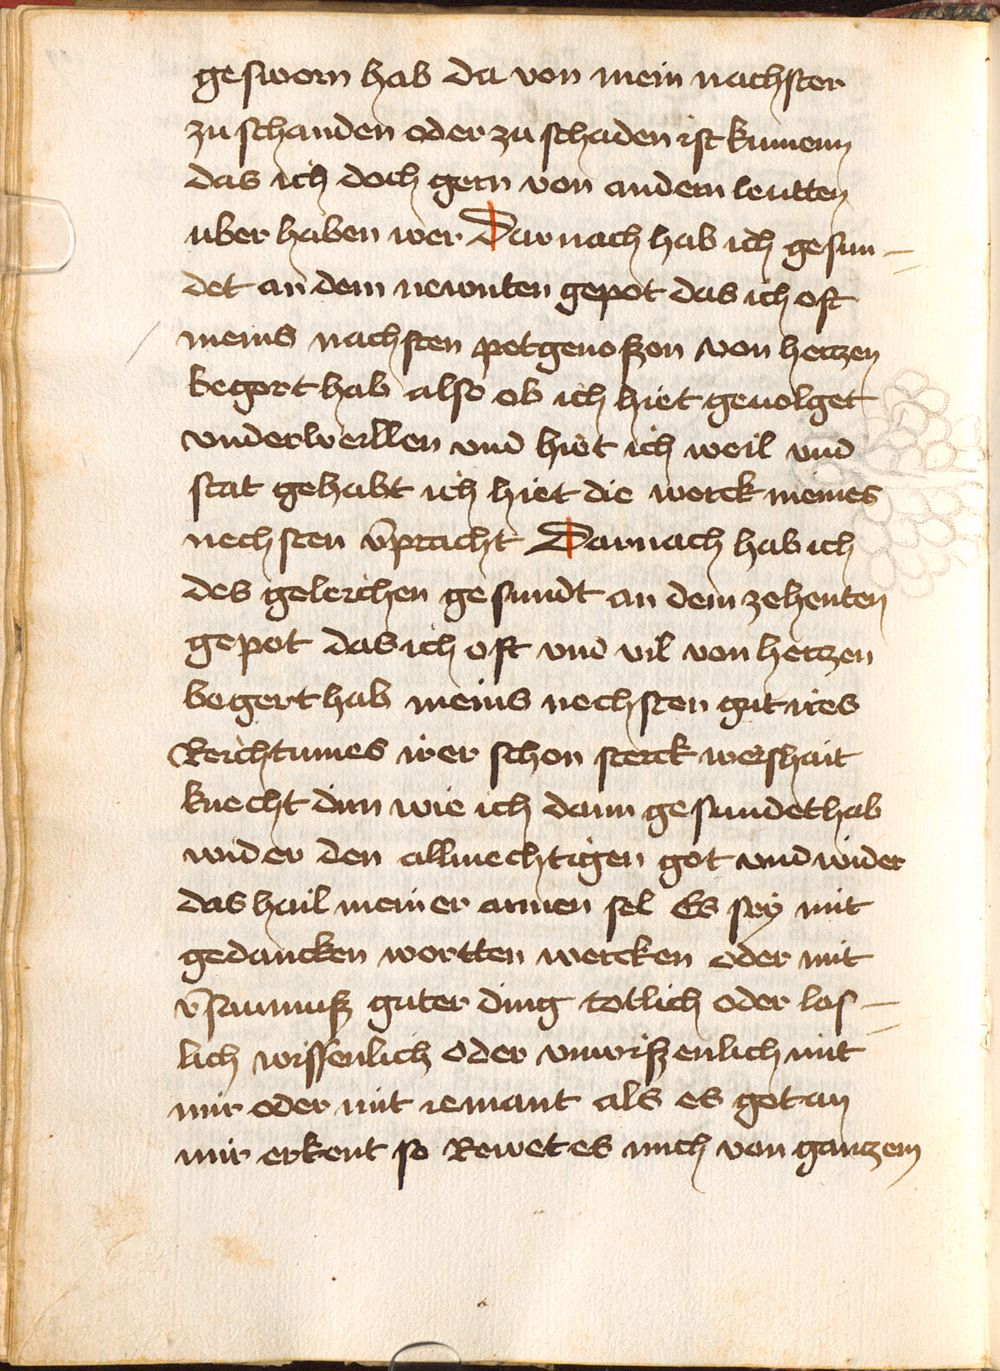 gesworn hab da von mein nachster
zu schanden oder zu schaden ist kumenn
das ich doch gern von andern leutten
uber haben wer Darnach hab ich gesun-
det an dem newnten gepot das ich oft
meins nachsten petgenoszen von hertzen
begert hab also ob ich hiet geuolget
vnderweillen vnd hiet ich weil vnd
stat gehabt ich hiet die werck meines
nechsten v̄pracht Darnach hab ich
des geleichen gesundt an dem zehenten
gepot das ich oft vnd vil von hertzen
begert hab meins nechsten gut ires
Reichtumes irer schon sterck weishait
knecht dirn wie ich dann gesundet hab
wider den allmechtigen got vnd wider
das hail meiner armen sel Es sey mit
gedancken wortten wercken oder mit
v̄saumnusz guter ding totlich oder las-
lich wissenlich oder vnwiszenlich mit
mir oder mit iemant als es got an
mir erkent so Rewet es mich von gantzem